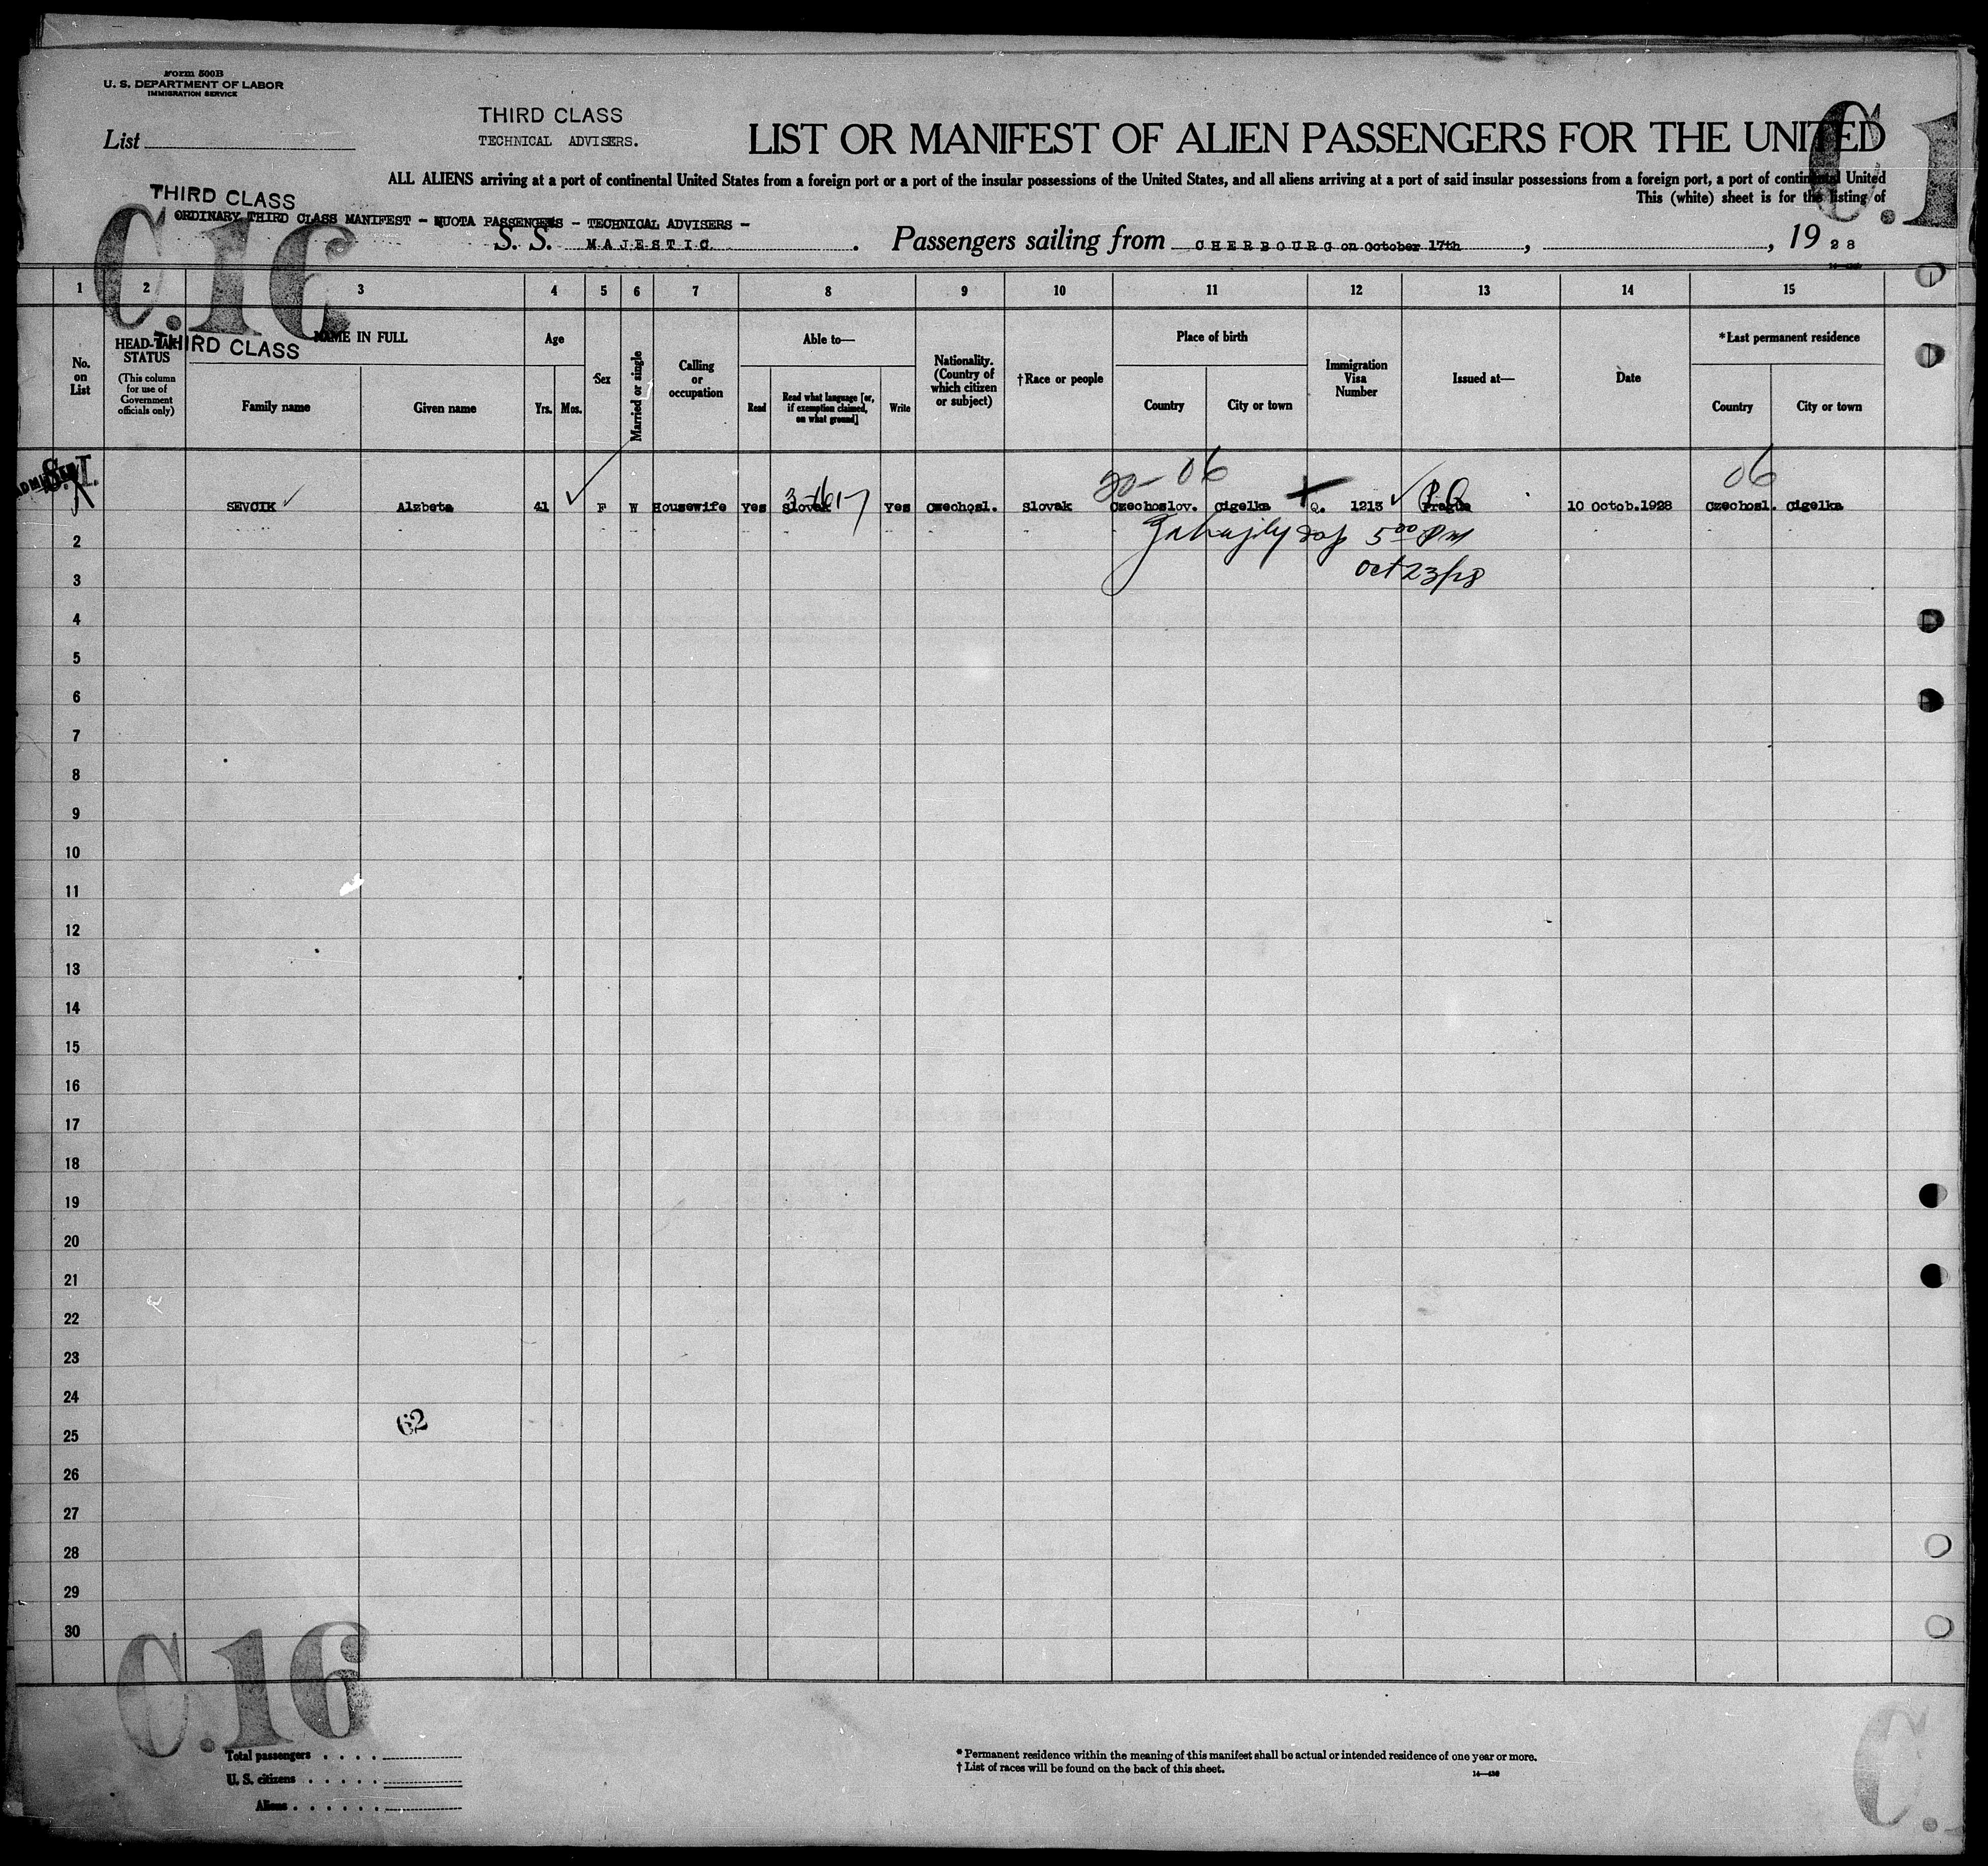 Form 500B
U. S. DEPARTMENT OF LABOR
IMMIGRATION SERVICE
List
THIRD CLASS
TECHNICAL ADVISERS.
LIST OR MANIFEST OF ALIEN PASSENGERS FOR THE UNITED
C.1
ALL ALIENS arriving at a port of continental United States from a foreign port or a port of the insular possessions of the United States, and all aliens arriving at a port of said insular possessions from a foreign port, a port of continental United
This (white) sheet is for the listing of
THIRD CLASS
ORDINARY THIRD CLASS MANIFEST - QUOTA PASSENGERS - TECHNICAL ADVISERS -
S. S. MAJESTIC. Passengers sailing from CHERBOURG on October 17th, , 19 28
C.16
1 2 3 4 5 6 7 8 9 10 11 12 13 14 15
No. on List
HEAD-TAX STATUS
(This column for use of Government officials only)
THIRD CLASS
NAME IN FULL
Family name Given name
Age
Yrs. Mos.
Sex
Married or single
Calling or occupation
Able to—
Read
Read what language [or, if exemption claimed, on what ground]
Write
Nationality. (Country of which citizen or subject)
†Race or people
Place of birth
Country City or town
Immigration Visa Number
Issued at—
Date
*Last permanent residence
Country City or town
ADMITTED
S.I.
20- 06 06
3-1617
P Q
SEVCIK Alzbeta 41 F W Housewife Yes Slovak Yes Czechosl. Slovak Czechoslov. Cigelka Q. 1213 Prague 10 Octob.1928 Czechosl. Cigelka
5 00 PM
Oct 23/28
2
3
4
5
6
7
8
9
10
11
12
13
14
15
16
17
18
19
20
21
22
23
24
62
25
26
27
28
29
30
C.16
C.
Total passengers
U. S. citizens
Aliens
* Permanent residence within the meaning of this manifest shall be actual or intended residence of one year or more.
† List of races will be found on the back of this sheet.